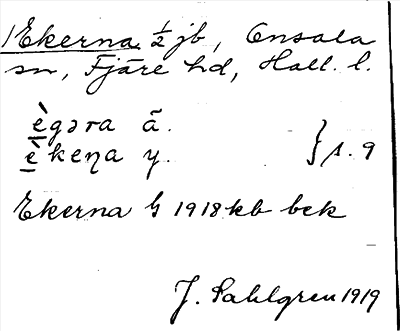 1 Ekerna ½ jb, Onsala
sn, Fjäre hd, Hall. l.
ègəra ä.
èkeɳa y. } s. 9
Ekerna G 1918 kb bek
J. Sahlgren 1919